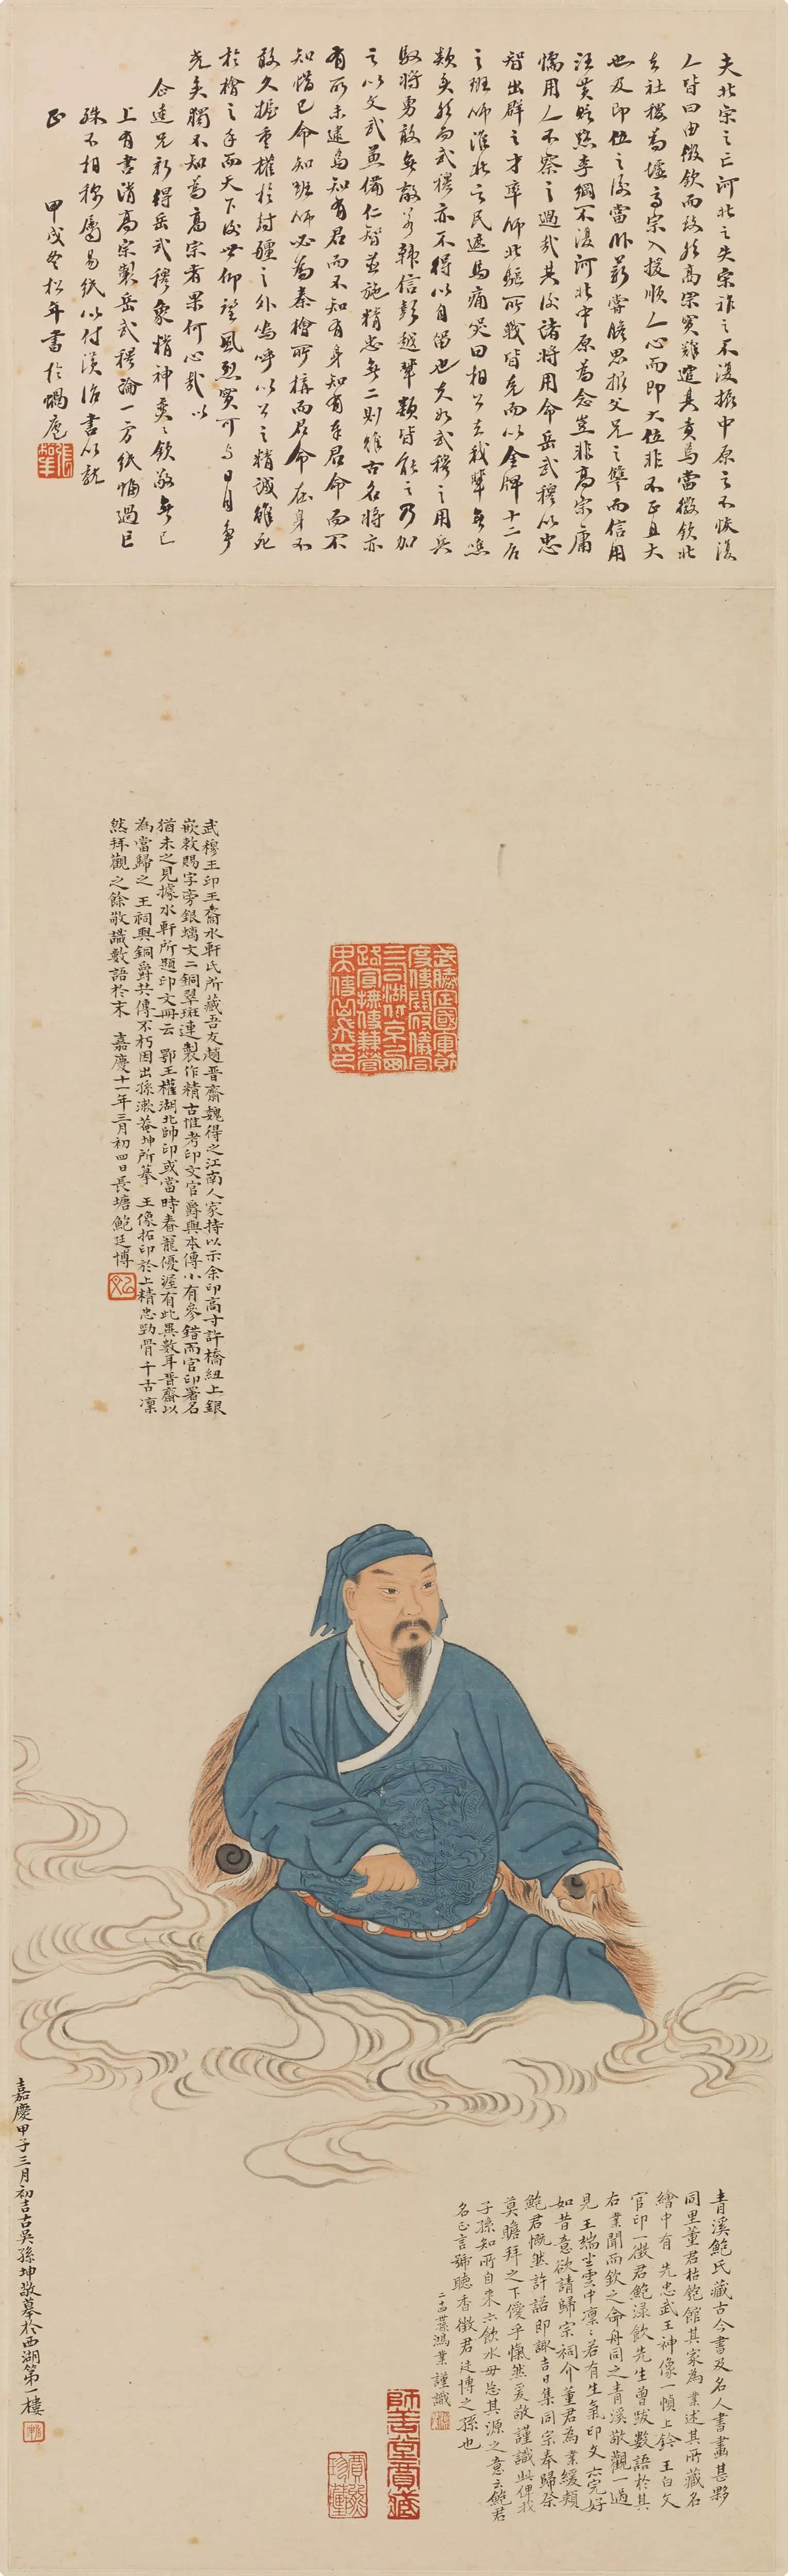 夫北宗之亡河北之失宗祚之不復振中原之不恢復
人皆曰由徽欽而致然高宗實難逭其責焉當徽欽北
去社稷為墟高宗入援順人心而即大位非不正且大
也及即位之後當臥薪嘗膽思報父兄之讐而信用
汪黃貶黜李綱不復河北中原為念豈非高宗庸
懦用人不察之過哉其後諸將用命岳武穆以忠
智出群之才率師北驅所戰皆克而以金牌十二召
之班師淮北之民遮馬痛哭曰相公去我輩無噍
類矣然而武穆亦不得以自留也夫如武穆之用兵
馭將勇敢無敵若韓信彭越輩類皆能之乃加
之以文武兼備仁智並施精忠無二則雖古名將亦
有所未逮焉知有君而不知有身知有奉君命而不
知惜己命知班師必為秦檜所搆而君命在身不
敢久握重權於封疆之外嗚呼以公之精誠雖死
於檜之手而天下後世仰望風烈實可與日月爭
光矣獨不知為高宗者果何心哉以
企達兄新得岳武穆象精神奕奕欽敬無已
上有書清高宗製岳武穆論一方紙惼過巨
殊不相稱屬易紙以付漢治書以就
正
甲戌冬松年書於蠋庵
武勝定國軍節
度使開府儀同
三司湖北京西
路宣撫使兼營
田使岳飛印
武穆王印王裔水軒氏所藏吾友趙晉齋魏得之江南人家持以示余印高寸許橋紐上銀
嵌敕賜字旁銀螭文二銅翠斑連製作精古惟考印文官爵與本傳小有參錯而官印署名
猶未之見據水軒所題印文冊云 鄂王權湖北帥印或當時眷寵優渥有此異數耳晉齋以
為當歸之 王祠與銅爵共傳不朽因出孫漱菴坤所摹 王像拓印於上精忠勁骨千古凜
然拜觀之餘敬識數語於末 嘉慶十一年三月初四日長塘鮑廷博
青溪鮑氏藏古今書及名人書畫甚夥
同里董君枯匏館其家為業述其所藏名
繪中有 先忠武王神像一幀上鈐 王白文
官印一徵君鮑淥飲先生曾跋數語於其
右業聞而欽之命舟同之青溪敬觀一過
見 王端坐雲中凜凜若有生氣印文亦完好
如昔意欲請歸宗祠介董君為業緩頰
鮑君慨然許諾即諏吉日集同宗奉歸祭
奠瞻拜之下僾乎愾然爰敬謹識此俾我
子孫知所自來亦飲水毋忘其源之意云鮑君
名正言號聽香徵君廷博之孫也
二十四葉孫鴻業謹識
師善堂寶藏
嘉慶甲子三月初吉古吳孫坤敬摹於西湖第一樓